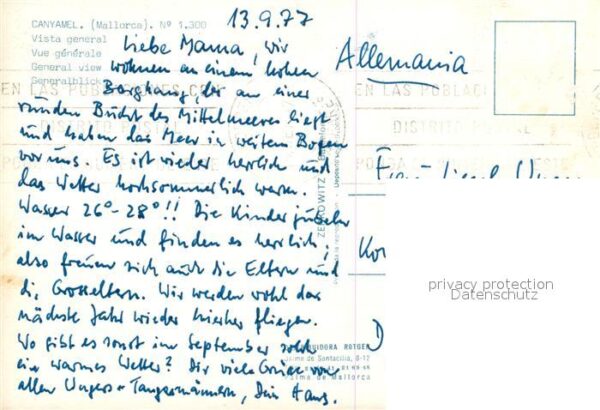 CANYAMEL. (Mallorca). Nº 1.300
Vista general
Vue générale
General view
Generalblick
13.9.77
Liebe Mama, wir
wohnen an einem hohen
Berghang, der an einer
runden Bucht des Mittelmeeres liegt
und haben das Meer in weitem Bogen
vor uns. Es ist wieder herrlich und
das Wetter hochsommerlich warm.
Wasser 26°-28°!! Die Kinder jubeln
im Wasser und finden es herrlich!
also freuen sich auch die Eltern und
die Grosseltern. Wir werden wohl das
nächste Jahr wieder hierher fliegen.
Wo gibt es sonst im September solch
ein warmes Wetter? Dir viele Grüße von
allen Ungers + Tangermännern, Dein Hans.
Allemania
EN LAS POBLACIONES CON
EN LAS POBLA
DISTRITO POSTAL
ZERKOWITZ
ISIDORA ROTGER
Jaime de Santacilia, 8-12
Palma de Mallorca
privacy protection
Datenschutz